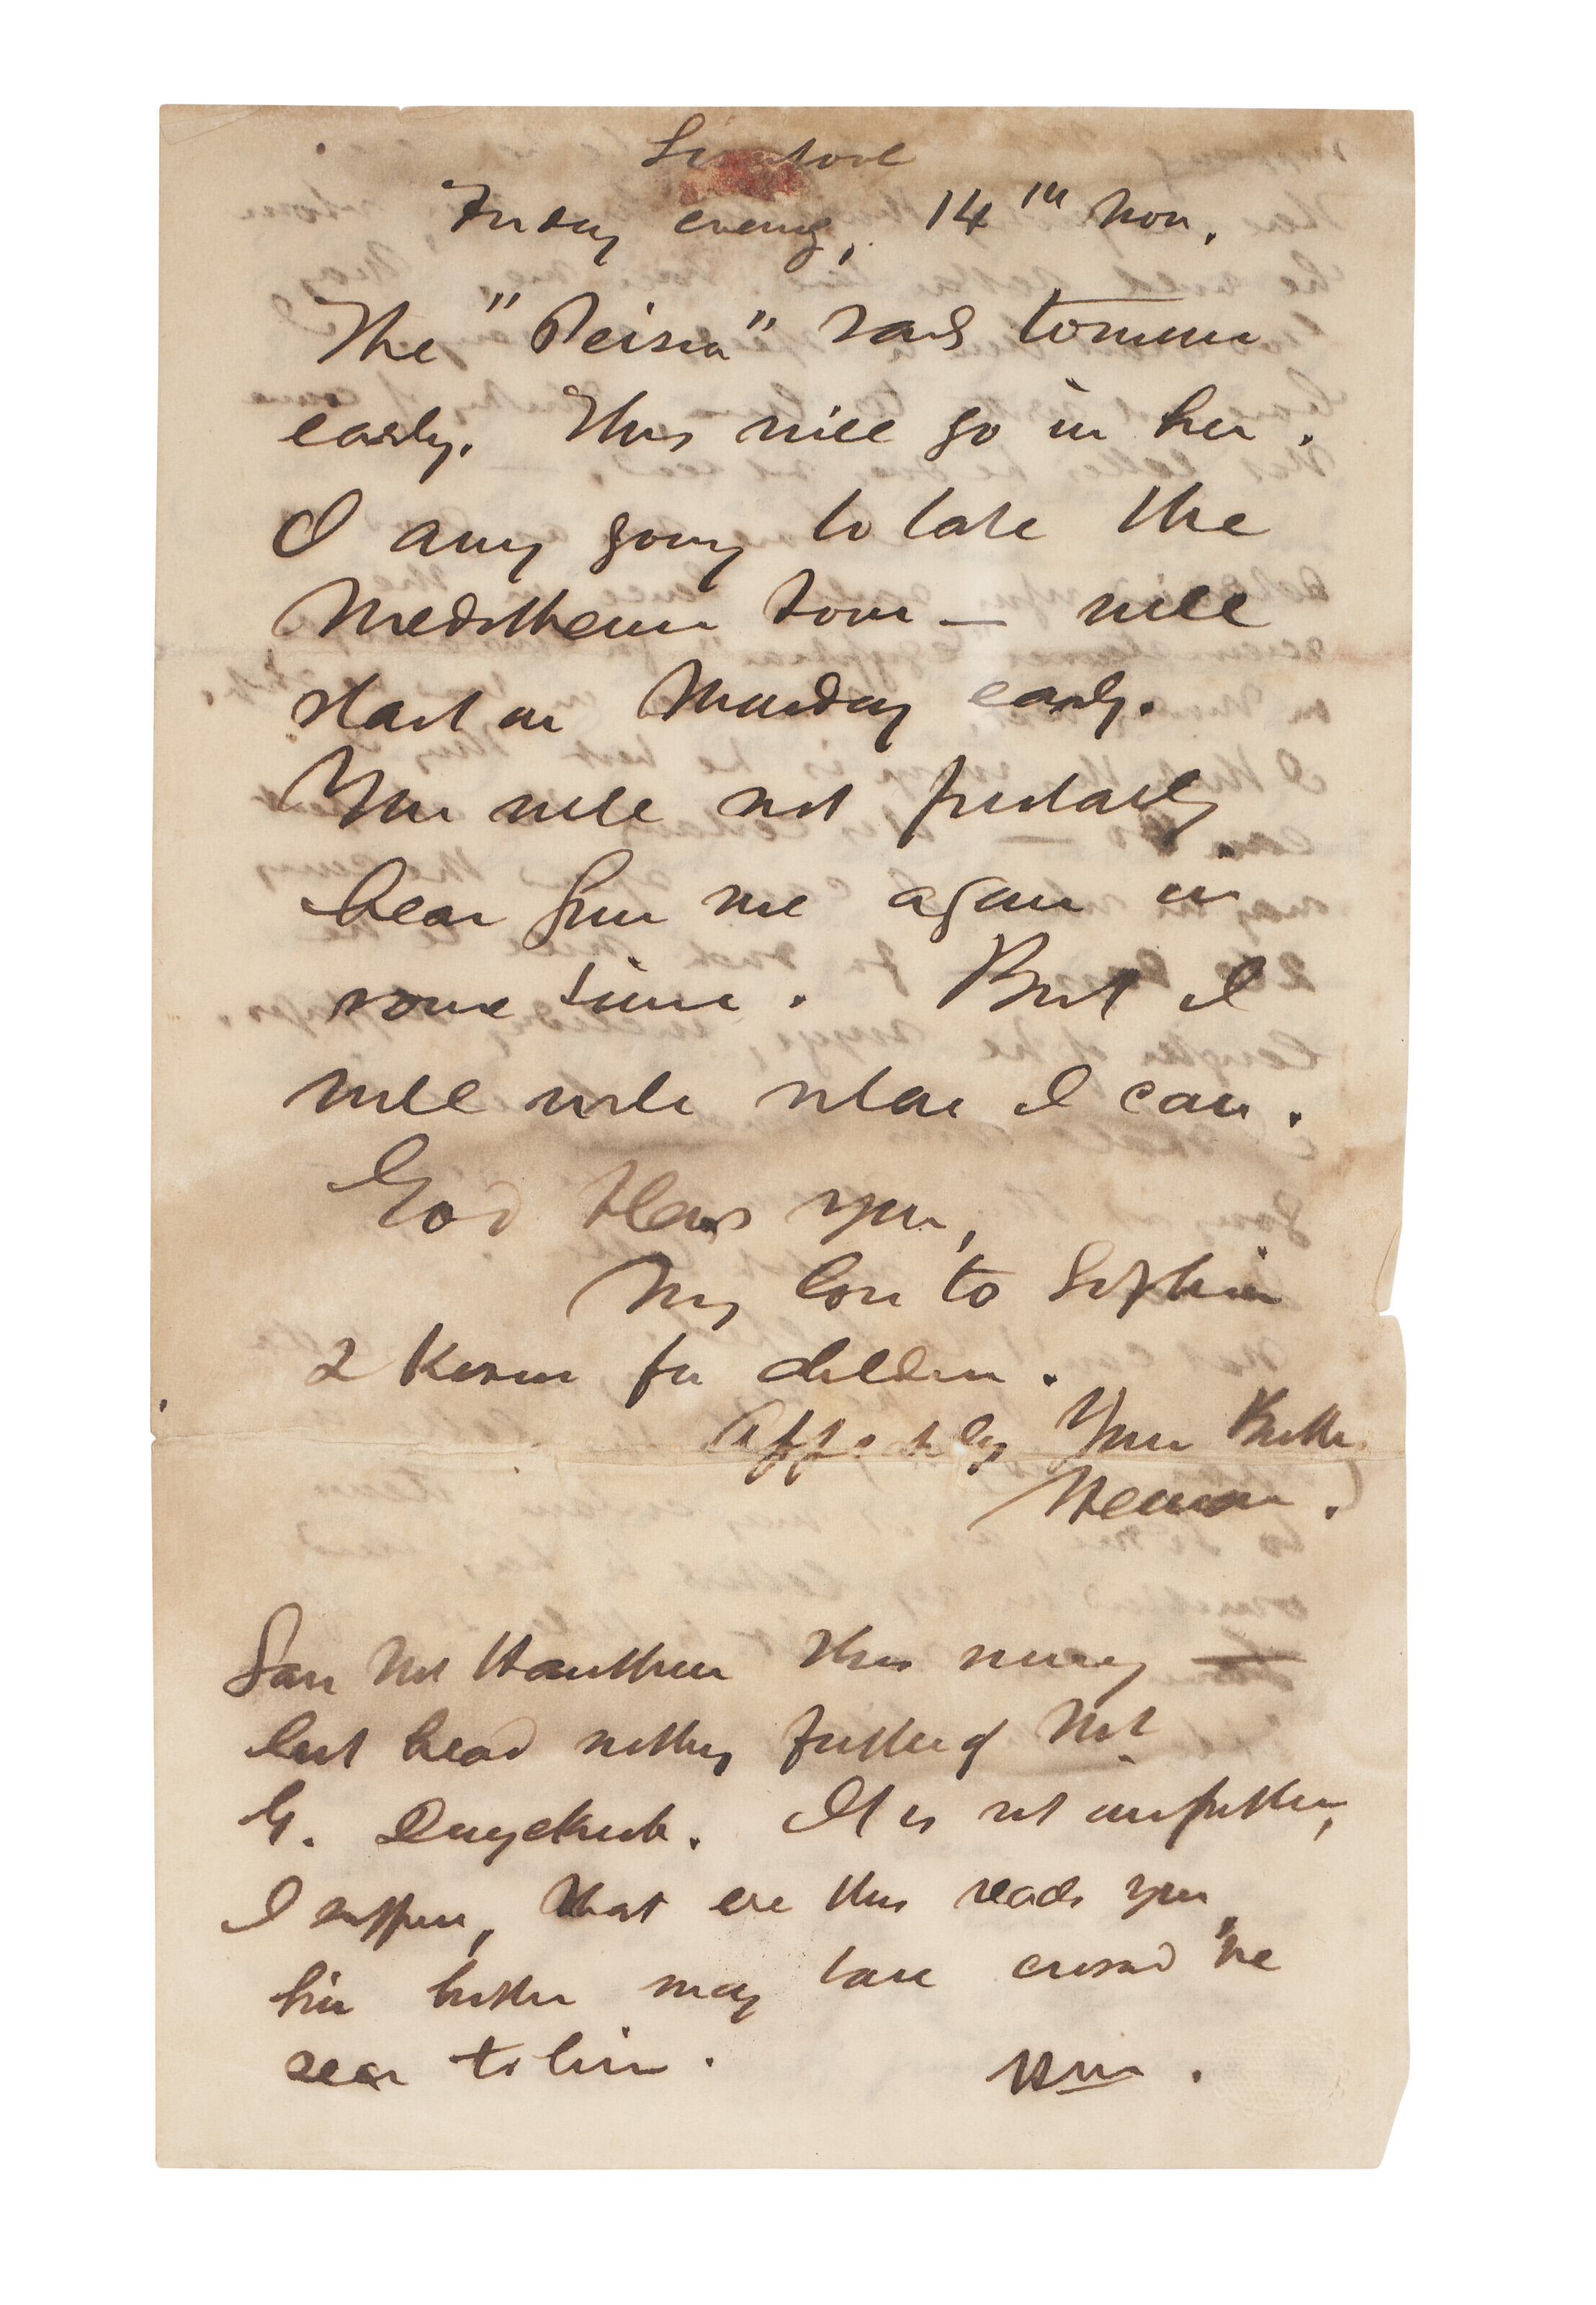 Liverpool
Friday evening, 14th Nov.
The "Persia" sails tomorrow
early. This will go in her.
I am going to take the
Mediterranean tour — will
start on Monday early.
You will not probably
hear from me again in
some time. But I
will write when I can.
God bless you,
My love to Sophia
& Kisses for children.
Affectly Your Brother
Herman.
Saw Mr Hawthorne this morning —
but heard nothing further of Mr
G. Duyckinck. It is not improbable,
I suppose, that ere this reach you,
his brother may have crossed the
sea to him.
HM.